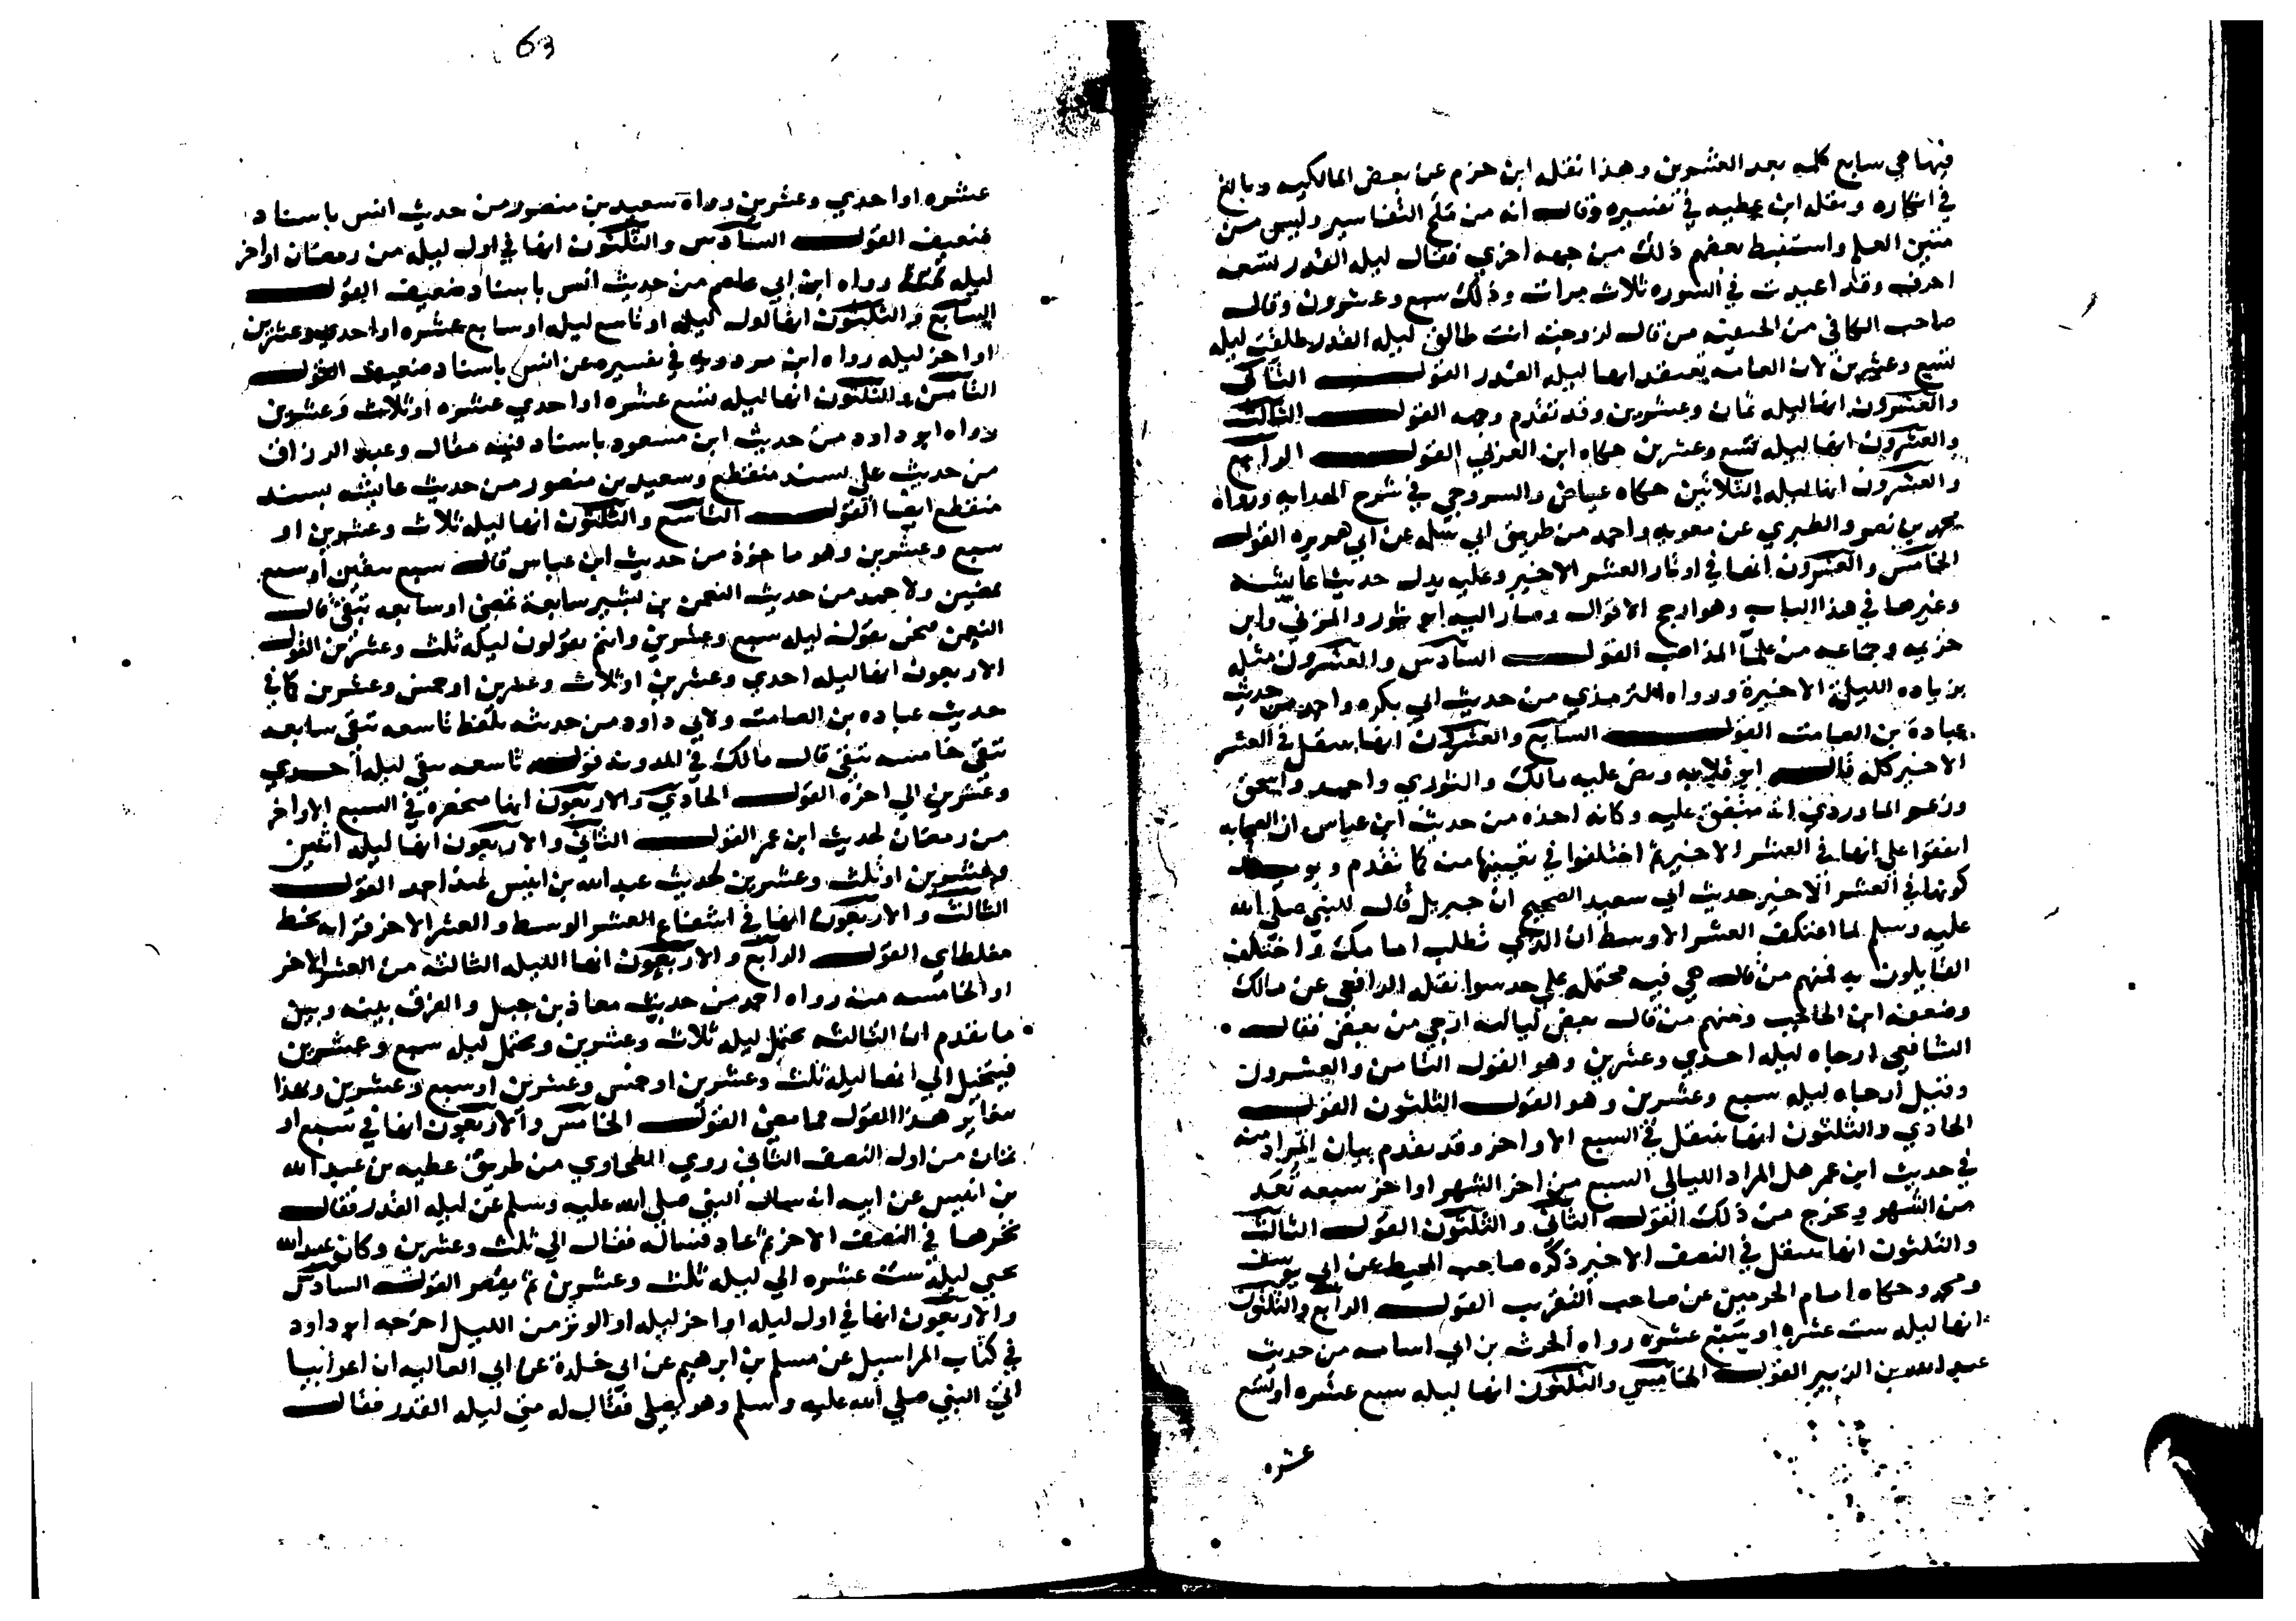 فيها هي سابع كلمه بعد العشرين وهذا نقله ابن حزم عن بعض المالكيه وبالغ
في انكاره ونقله ابن عطيه في تفسيره وقال انه من ملح التفاسير وليس من
متين العلم واستنبط بعضهم ذلك من جهه اخري فقال ليله القدر تسعه
احرف وقد اعيدت في السوره ثلاث مرات وذلك سبع وعشرون وقال
صاحب الكافي من الحنفيه من قال لزوجته انت طالق ليله القدر طلقت ليله
سبع وعشرين لان العامه تعتقد انها ليله القدر القول الثاني
والعشرون انها ليله ثمان وعشرين وقد تقدم وجهه القول الثالث
والعشرون انها ليله تسع وعشرين حكاه ابن العربي القول الرابع
والعشرون انها ليله الثلاثين حكاه عياض والسروجي في شرح الهدايه ورواه
محمد بن نصر والطبري عن معويه واحمد من طريق ابي سلمه عن ابي هريره القول
الخامس والعشرون انها في اوتار العشر الاخير وعليه يدل حديث عايشه
وغيرها في هذا الباب وهو ارجح الاقوال وصار اليه ابو ثور والمزني وابن
خزيمه وجماعه من علمآ المذاهب القول السادس والعشرون مثله
بزياده الليلة الاخيرة ورواه الترمذي من حديث ابي بكره واحمد من حديث
عبادة بن الصامت القول السابع والعشرون انها تنتقل في العشر
الاخير كله قاله ابو قلابه ونص عليه مالك والثوري واحمد واسحق
وزعم الماوردي انه متفق عليه وكانه اخذه من حديث ابن عباس ان الصحابه
اتفقوا علي انها في العشر الاخير ثم اختلفوا في تعيينها منه كما تقدم ويويد
كونها في العشر الاخير حديث ابي سعيد الصحيح ان جبريل قال للنبي صلي الله
عليه وسلم لما اعتكف العشر الاوسط ان الذي تطلب امامك واختلف
القايلون به فمنهم من قال هي فيه محتمله علي حد سوا نقله الرافعي عن مالك
وضعفه ابن الحاجب ومنهم من قال بعض لياليه ارجي من بعض فقال
الشافعي ارجاه ليله احدي وعشرين وهو القول الثامن والعشرون
وقيل ارجاه ليله سبع وعشرين وهو القول الثلثون القول
الحادي والثلثون انها تنتقل في السبع الاواخر وقد تقدم بيان المراد منه
في حديث ابن عمر هل المراد الليالي السبع من اخر الشهر او اخر سبعه تعد
من الشهر ويخرج من ذلك القول الثاني والثلثون القول الثالث
والثلثون انها تنتقل في النصف الاخير ذكره صاحب المحيط عن ابي يوسف
ومحمد وحكاه امام الحرمين عن صاحب التقريب القول الرابع والثلثون
انها ليله ست عشره او سبع عشره رواه الحرث بن ابي اسامه من حديث
عبد الله بن الزبير القول الخامس والثلثون انها ليله سبع عشره او تسع
عشره
63
عشره او احدي وعشرين رواه سعيد بن منصور من حديث انس باسناد
ضعيف القول السادس والثلثون انها في اول ليله من رمضان او اخر
ليله رواه ابن ابي عاصم من حديث انس باسناد ضعيف القول
السابع والثلثون انها اول ليله او تاسع ليله او سابع عشره او احدي وعشرين
او اخر ليله رواه ابن مردويه في تفسيره عن انس باسناد ضعيف القول
الثامن والثلثون انها ليله تسع عشره او احدي عشره او ثلاث وعشرين
رواه ابو داود من حديث ابن مسعود باسناد فيه مقال وعبد الرزاق
من حديث علي بسند منقطع وسعيد بن منصور من حديث عايشه بسند
منقطع ايضا القول التاسع والثلثون انها ليله ثلاث وعشرين او
سبع وعشرين وهو ماخوذ من حديث ابن عباس قال سبع يبقين او سبع
يمضين ولاحمد من حديث النعمن بن بشير سابعة تمضي او سابعه تبقي قال
النعمن فنحن نقول ليله سبع وعشرين وانتم تقولون ليله ثلث وعشرين القول
الاربعون انها ليله احدي وعشرين او ثلاث وعشرين او خمس وعشرين كما في
حديث عباده بن الصامت ولابي داود من حديثه بلفظ تاسعه تبقي سابعه
تبقي خامسه تبقي قال مالك في المدونه قوله تاسعه تبقي ليله احدي
وعشرين الي اخره القول الحادي والاربعون انها منحصره في السبع الاواخر
من رمضان لحديث ابن عمر القول الثاني والاربعون انها ليله اثنين
وعشرين او ثلث وعشرين لحديث عبد الله بن انيس عند احمد القول
الثالث والاربعون انها في اشفاع العشر الوسط والعشر الاخر قراته بخط
مغلطاي القول الرابع والاربعون انها الليله الثالثه من العشر الاخر
او الخامسه منه رواه احمد من حديث معاذ بن جبل والفرق بينه وبين
ما تقدم ان الثالثه تحتمل ليله ثلاث وعشرين وتحتمل ليله سبع وعشرين
فينحل الي انها ليله ثلث وعشرين او خمس وعشرين او سبع وعشرين وبهذا
يتغاير هذا القول مما مضي القول الخامس والاربعون انها في سبع او
ثمان من اول النصف الثاني روي الطحاوي من طريق عطيه بن عبد الله
بن انيس عن ابيه انه سال النبي صلي الله عليه وسلم عن ليله القدر فقال
تحرها في النصف الاخر ثم عاد فساله فقال الي ثلث وعشرين وكان عبد الله
يحيي ليلة ست عشره الي ليله ثلث وعشرين ثم يقصر القول السادس
والاربعون انها في اول ليله او اخر ليله او الوتر من الليل اخرجه ابو داود
في كتاب المراسيل عن مسلم بن ابرهيم عن ابي خلدة عن ابي العاليه ان اعرابيا
اتي النبي صلي الله عليه وسلم وهو يصلي فقال له متي ليله القدر فقال